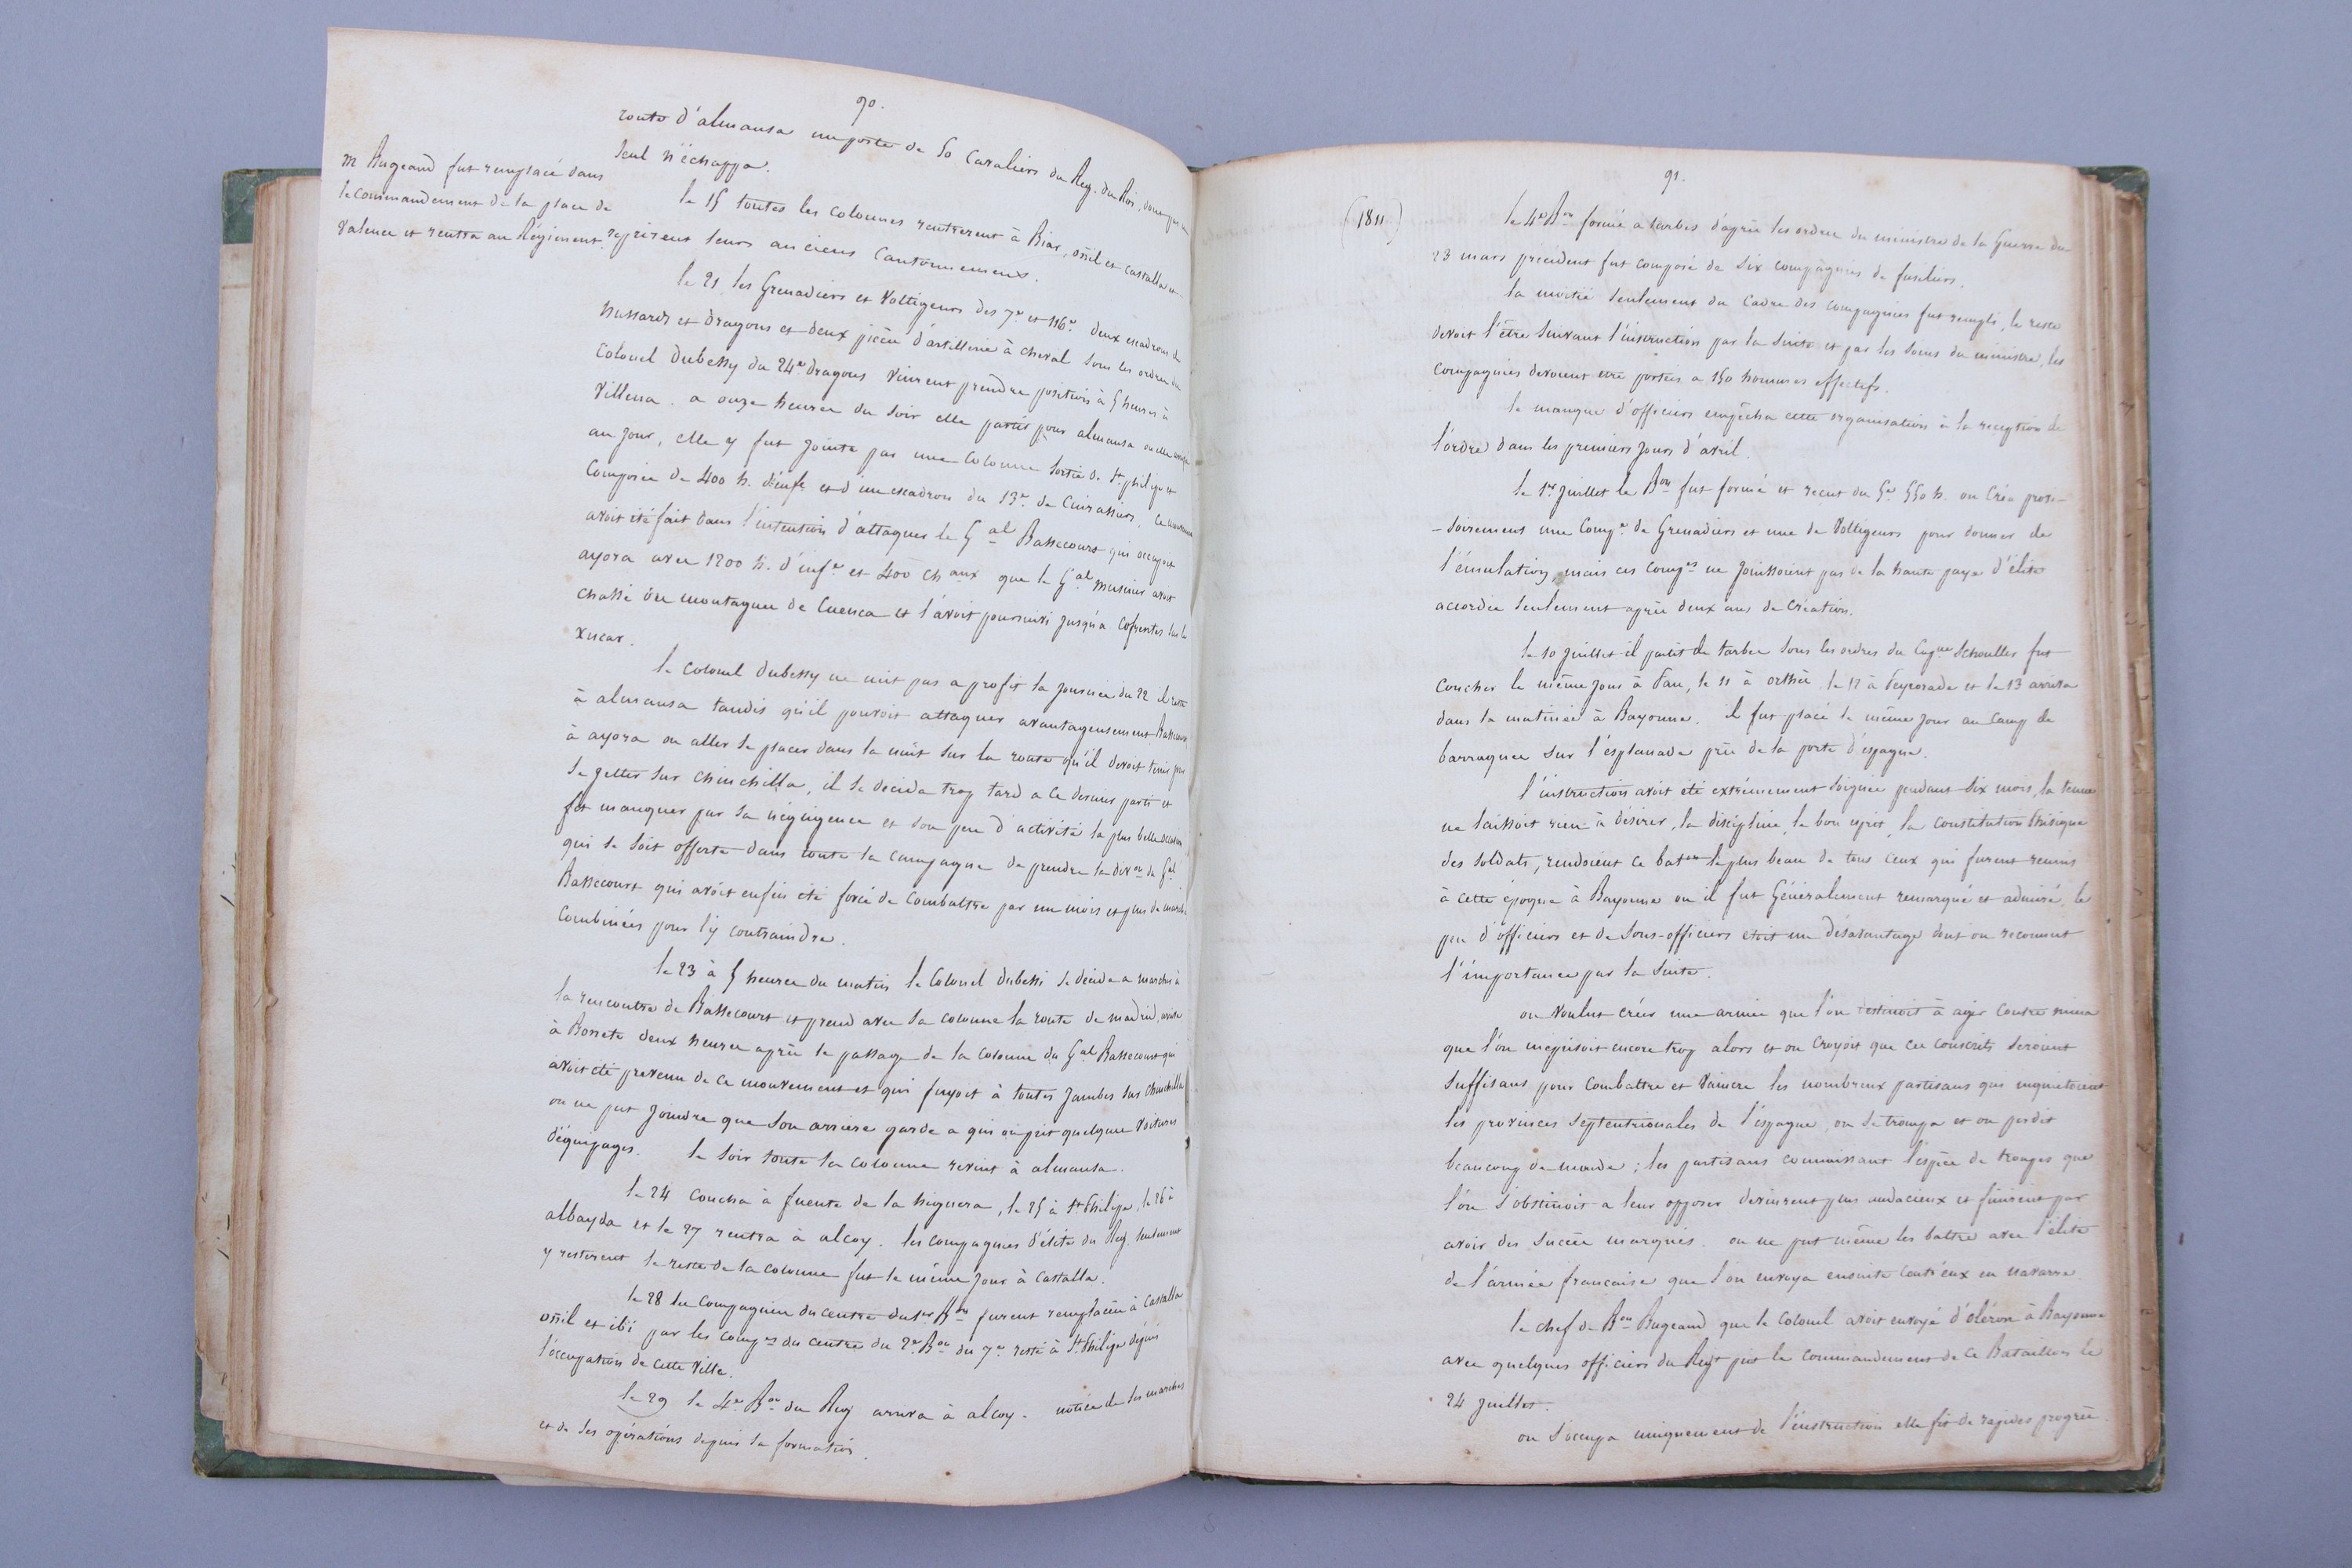 90.
route d'almansa un poste de 50 Cavaliers du Reg. du Roi, dont pas un
seul n'échappa.
m Bugeaud fut remplacé dans
le commandement de la place de
Valence et rentra au Régiment.
le 15 toutes les colonnes rentrerent à Biar, oñil et Castalla et
reprirent leurs anciens Cantonnemens.
le 21 les Grenadiers et Voltigeurs des 7e et 116e deux escadrons de
hussards et dragons et deux pièces d'artillerie à cheval sous les ordres du
Colonel dubessy du 24e dragons vinrent prendre position à 5 heures à
Villena. a onze heures du soir elle partit pour almansa ou elle arriva
au jour, elle y fut jointe par une Colonne sortie de St. philipe et
Composée de 400 h. d'infe et d'un escadron du 13e de Cuirassiers. Ce mouvement
avoit été fait dans l'intention d'attaquer le Gal Bassecourt qui occupoit
ayora avec 1200 h. d'infe et 400 chaux que le Gal musnier avoit
chassé des montagnes de Cuenca et l'avoit poursuivi jusqu'a Cofrentes sur le
xucar.
le Colonel dubessy ne mit pas a profit la journée du 22 il resta
à almansa tandis qu'il pouvoit attaquer avantageusement Bassecourt
à ayora ou aller se placer dans la nuit sur la route qu'il devoit tenir pour
se jetter sur chinchilla, il se décida trop tard a ce dernier parti et
fit manquer par sa négligence et son peu d'activité la plus belle occasion
qui se soit offerte dans toute la campagne de prendre la divon du Gal
Bassecourt qui avoit enfin été forcé de Combattre par un mois et plus de marches
Combinées pour l'y contraindre.
le 23 à 5 heures du matin le Colonel dubessi se décide a marcher à
la rencontre de Bassecourt et prend avec sa colonne la route de madrid, arrive
à Bonete deux heures après le passage de la Colonne du Gal Bassecourt qui
avoit été prevenu de ce mouvement et qui fuyoit à toutes jambes sur Chinchilla
on ne put joindre que son arriere garde a qui on prit quelques voitures
d'équipages. le soir toute la colonne revint à almansa.
le 24 coucha à fuente de la higuera, le 25 à St Philipe, le 26 à
albayda et le 27 rentra à alcoy. les compagnies d'élite du Reg. seulement
y resterent le reste de la colonne fut le même jour à Castalla.
le 28 les compagnies du centre du 1er Bon furent remplacées à Castalla
oñil et ibi par les compes du centre du 2e Bon du 7e resté à St Philipe depuis
l'occupation de cette ville.
le 29 le 4e Bon du Reg arriva à alcoy. notice de ses marches
et de ses opérations depuis sa formation.
91.
(1811)
le 4e Bon formé a tarbes d'après les ordres du ministre de la Guerre du
23 mars précédent fut composé de six compagnies de fusiliers.
la moitié seulement du Cadre des compagnies fut rempli, le reste
devoit l'être suivant l'instruction par la suite et par les soins du ministre, les
Compagnies devoient etre portées a 150 hommes effectifs.
le manque d'officiers empêcha cette organisation à la reception de
l'ordre dans les premiers jours d'avril.
le 1er juillet le Bon fut formé et recut du 5e 550 h. on créa provi-
-soirement une Compe de Grenadiers et une de Voltigeurs pour donner de
l'émulation, mais ces Compes ne jouissoient pas de la haute paye d'élite
accordée seulement après deux ans de création.
le 10 juillet il partit de tarbes sous les ordres du Capne Schouller fut
Coucher le même jour à Pau, le 11 à orthès, le 12 à Peyrorade et le 13 arriva
dans la matinée à Bayonne. il fut placé le même jour au Camp de
barraques sur l'esplanade près de la porte d'espagne.
l'instruction avoit été extrêmement soignée pendant six mois, la tenue
ne laissoit rien à désirer, la discipline, le bon esprit, la constitution Phisique
des soldats, rendoient ce baton le plus beau de tous ceux qui furent reunis
à cette époque à Bayonne ou il fut Généralement remarqué et admiré, le
peu d'officiers et de sous-officiers etoit un désavantage dont on reconnut
l'importance par la suite.
on voulut créer une armée que l'on destinoit à agir contre mina
que l'on meprisoit encore trop alors et on Croyoit que ces conscrits seroient
suffisans pour Combattre et vaincre les nombreux partisans qui inquietoient
les provinces septentrionales de l'espagne, on se trompa et on perdit
beaucoup de monde; les partisans connoissant l'espèce de troupes que
l'on s'obstinoit a leur opposer devinrent plus audacieux et finirent par
avoir des succès marqués. on ne put même les battre avec l'élite
de l'armée francaise que l'on envoya ensuite contr'eux en navarre.
le chef de Bon Bugeaud que le Colonel avoit envoyé d'oléron à Bayonne
avec quelques officiers du Regt prit le commandement de ce Bataillon le
24 juillet.
on s'occupa uniquement de l'instruction elle fit de rapides progrès.